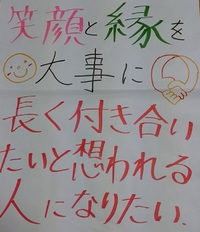 笑顔と縁を
大事に
長く付き合い
たいと想われる
人になりたい.